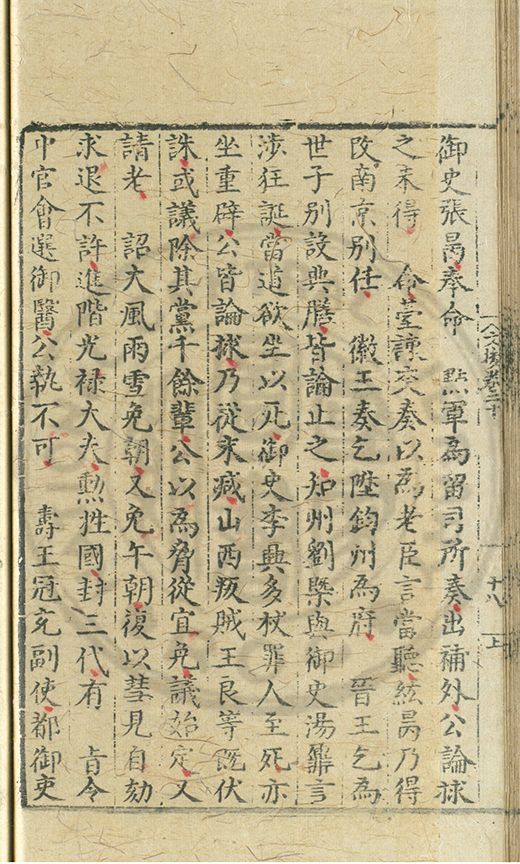 御史張昺奉命 㸃軍為留司所奏出補外公論捄
之来得 命臺諫交奏以為老臣言當聽紘昺乃得
改南京別任 徽王奏乞陞鈞州為府 晉王乞為
世子別設典膳皆論止之知州劉槩與御史湯鼐言
渉狂誕當道欲坐以死御史李興多杖罪人至死亦
坐重辟公皆論捄乃從末减山西叛賊王良等旣伏
誅或議除其黨千餘輩公以為脅從宜免議始定又
請老 詔大風雨雪免朝又免午朝復以彗見自劾
求退不許進階光禄大夫勲柱國封三代有 㫖令
中官會選御醫公執不可 壽王冠充副使都御吏
人物卷二十
十八
上